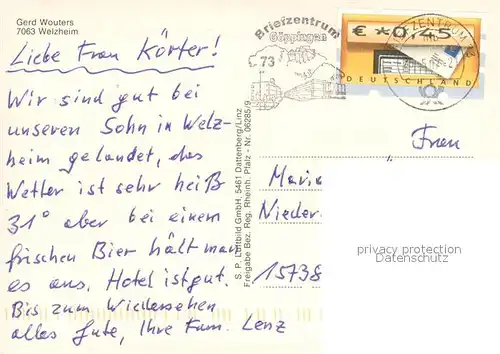 Gerd Wouters
7063 Welzheim
Liebe Frau Körter!
Wir sind gut bei
unseren Sohn in Welz-
heim gelandet, das
Wetter ist sehr heiß
31° aber bei einem
frischen Bier hält man
es aus. Hotel ist gut.
Bis zum Wiedersehen
alles Gute, Ihre Fam. Lenz
S. P. Luftbild GmbH, 5461 Dattenberg/Linz
Freigabe Bez. Reg. Rheinh. Pfalz - Nr. 06285/9
Briefzentrum
Göppingen
73
€ *0,45
DEUTSCHLAND
BRIEFZENTRUM
Frau
Maria
Nieder
15738
privacy protection
Datenschutz